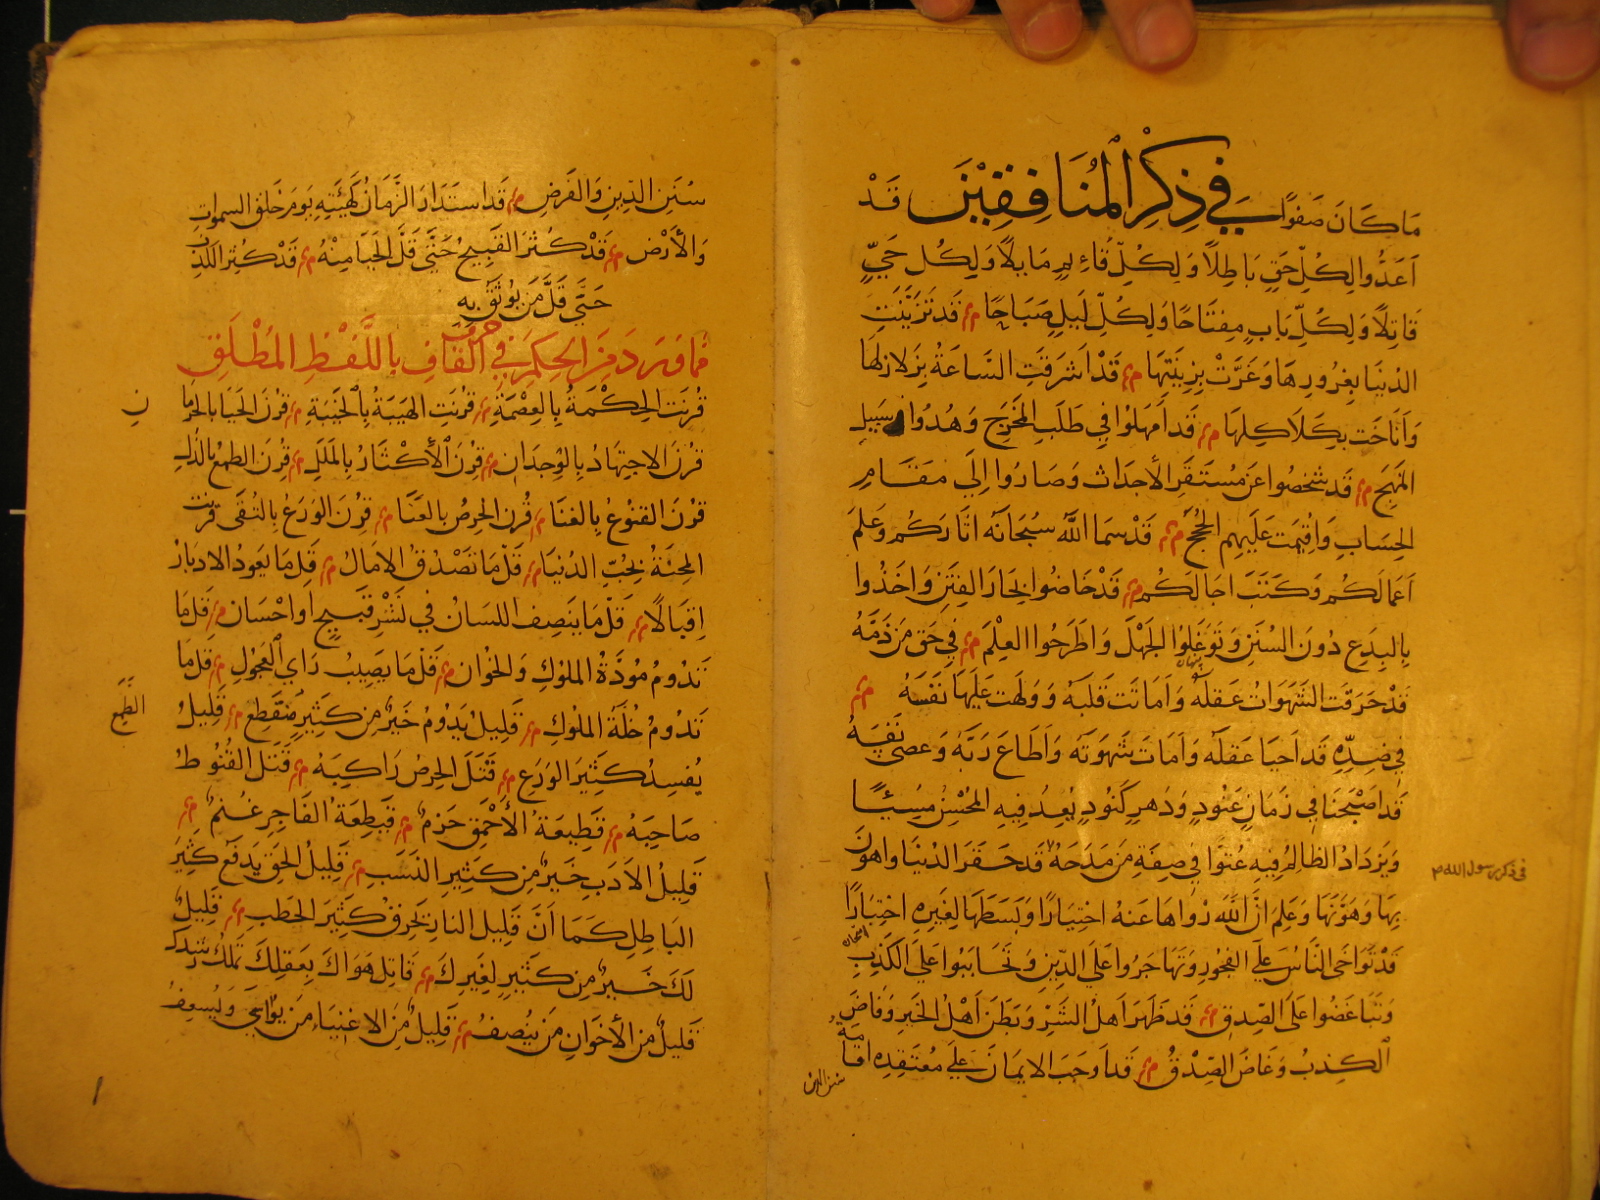 مَا كَانَ صَفوًا فِي ذِكْرِ الْمُنَافِقِيْنَ قَدْ
اَعَدُّوا لِكُلِّ حَقٍّ بَاطِلاً وَلِكُلِّ قَائِمٍ مَايِلاً وَلِكُلِ حَيٍّ
قَاتِلاً وَلِكُلِّ بَابٍ مِفتَاحًا وَلِكُلِّ لَيلٍ صَبَاحًا قَد تَزَيَّنَتِ
الدُنيَا بِغُرُورِهَا وَغَرَّتْ بِزِينَتِهَا قَدْ اَشرَقَتِ السَّاعَةُ بِزَلازِلهَا
وَاَنَاخَت بِكَلاَكِلِهَا قَد اُمهِلُوا فِي طَلَبِ المَخرَجِ وَهُدُوا سَبِيلَ
المَنهَجِ قَد شَخَصُوا عَن مُستَقَرِّ الاَجدَاثِ وَصَارُوا اِلَى مَقَامِ
الحِسَابِ وَاُقِيمَت عَلَيهِم الحُجَجُ قَد سَمَا اللّهُ سُبحَانَه اثَارَكُم وَعَلِمَ
اَعمَالَكُم وَكَتَبَ اجَالَكُم قَد خَاضُوا بِحَارَ الفِتَنِ وَاَخَذُوا
بِالبِدَعِ دُونَ السُنَنِ وَتَوَغَلُوا الجَهْلَ وَاطَّرَحُوا العِلْمَ فِي حَقِّ مَن ذَمَّهُ
قَد خَرَقَت الشَهَوَاتُ عَقلَهُ وَاَمَاتَت قَلبَهُ وَوَلَهت عَلَيهَا نَفسَهُ
فِي ضِدِّهِ قَد اَحيَا عَقلَه وَاَمَاتَ شَهوَتَه وَاَطَاعَ رَبَّهُ وَعَصَى نَفسَهُ
قَد اَصْبَحنَا فِي زَمَانٍ عَنُودٍ وَدَهرٍ كَنُودٍ يُعَدُّ فِيهِ المُحْسِنُ مُسِيْئًا
وَيَزدَادُ الظَالِمُ فِيهِ عُتُوًّا فِي صِفَةِ مَن مَدَحَهُ قَد حَقَرَ الدُنيَا وَاهوَنَ
فى ذكر رسول الله
بِهَا وَهَوَّنَهَا وَعَلِمَ اَنَّ اللّهَ زَوَاهَا عَنهُ اختِيَارًا وَبَسَطَهَا لِغَيرِهِ اختِبَارًا
قَد تَوَاخَى النَاسُ عَلَى الفُجُورِ وَتَهَاجَرُوا عَلَى الدِّينِ وَتَحَابَبُوا عَلَى الكَذِبِ
وَتَبَاغَضُوا عَلَى الصِّدقِ قَد ظَهَرَ اَهلُ الشَرِّ وَبَطَنَ اَهْلُ الخَيرِ وَفَاضَ
الكِذبُ وَغَاضَ الصِّدْقُ قَد اَوجَبَ الايمَانُ عَلَى مُعتَقِدِه اقَامَةَ
سنن الدين
سُنَنِ الدِّينِ وَالفَرضِ قَد استَدَارَ الزَّمَانُ كَهَيئَتِهِ يَومَ خَلَقَ السموات
وَالأَرْض قَدْ كَثُرَ القَبِيحُ حَتَّى قَلَّ الحَيَا مِنهُ قَدْ كَثُرَ الكَذِبُ
حَتَّى قَلَّ مَن يُوثَقُ بِهِ
فما ورد من الحِكَمِ فِي حرف القَافِ بِاللَّفْظِ المُطْلَقِ
قُرِنَت الحِكْمَةُ بِالعِصْمَةِ قُرِنَتِ الهَيبَةُ بِالخَيبَةِ قُرِنَ الحَيَا بِالحِرمَان
قُرِنَ الاِجتِهَادُ بِالوِجدَانِ قُرِنَ الاَكْثَارُ بِالمَلَلِ قُرِنَ الطَمَعُ بالذُّلِ
قُرِنَ القنُوعُ بِالغنَا قُرِن الحِرصُ بِالعَنَا قُرِنَ الوَرَعُ بِالتُقَى قرنت
المِحنَةُ بِحُبِّ الدُنيَا قَلَّ مَا تَصْدُقُ الامَالُ قَلَّ مَا يَعُودُ الادبَارُ
اِقبَالاً قَلَّ مَا يَنصِف اللسَانُ فِي نَشْرِ قَبِيحٍ اَو احْسَان قَلّ مَا
تَدُومُ مُوَدَّةُ المُلوكِ وَالخُوان قَلَّ مَا يُصِيبُ رَايُ العَجُولِ قَلَّ مَا
تَدُومُ خُلَّةُ المُلوكِ قَلِيلٌ يَدُومُ خَيرٌ مِن كَثِيرٍ مُنقَطِعٍ قَلِيلُ
الطَّمَعِ
يُفسِدُ كَثِيرَ الوَرَعِ قَتَلَ الحِرصُ رَاكِبَهُ قَتَلَ القُنُوطُ
صَاحِبَهُ قَطِيعَةُ الأَحْمَقِ حَزمٌ قَطِيعَةُ الفَاجِرِ غُنمٌ
قَلِيلُ الاَدَبِ خَيرٌ مِن كَثِيرِ النَسَبِ قَلِيلُ الحَقِ يَدفَعُ كَثِيرَ
البَاطِلِ كَمَا اَنَّ قَلِيلَ النارِ يَحرِقُ كَثِيرَ الحَطَبِ قَلِيلٌ
لَكَ خَيرٌ مِن كَثِيرٍ لِغَيرِكَ قَاتِل هَوَاكَ بِعَقلِكَ تَملِك رُشدَكَ
قَلِيلٌ مِن الأَخوَانِ مَن يُنصِفُ قَلِيلٌ مِن الاَغنِيَاءِ مَن يُوَاسِي وَيُسعِفُ